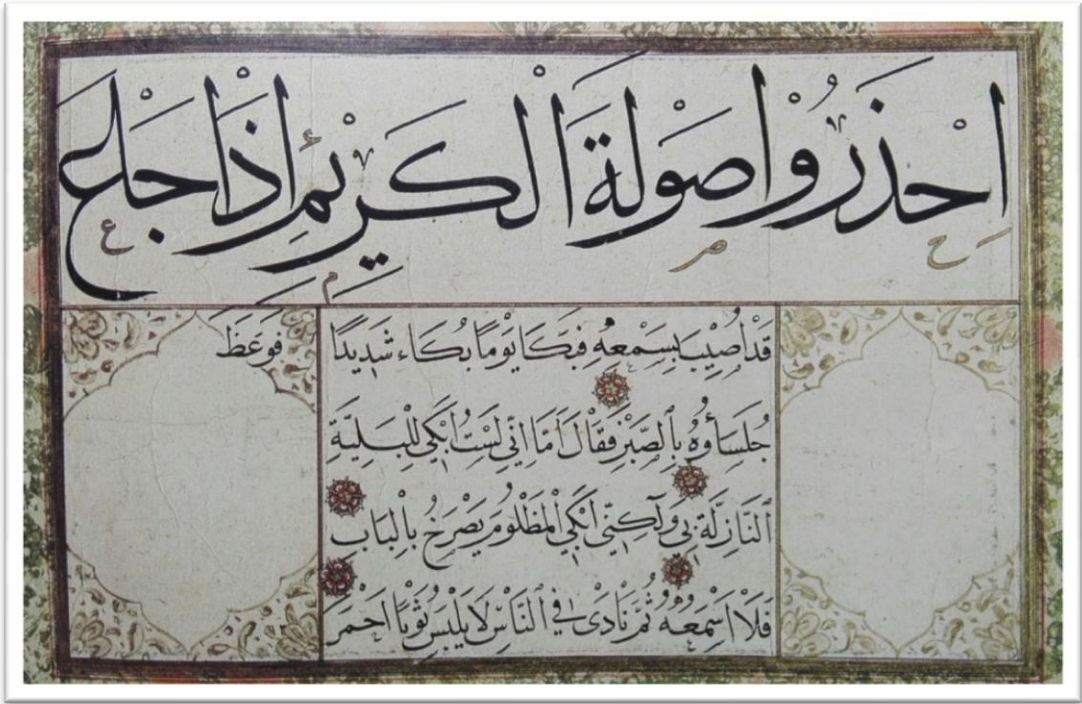 اِحْذَرُوْا صَوْلَةَ الْكَرِيْمِ اِذَا جَاعَ
قَدْ اُصِيْبَ بِسَمْعِهِ فَبَكَا يَوْمًا بُكَاء شَدِيْدًا فَوَعَظَ
جُلَسَاؤُهُ بِالصَّبْرِ فَقَالَ اَمَا اِنّي لَسْتُ اَبْكي لِلْبَلِيَّةِ
النَّازِلَةِ بي وَلٰكِنّي اَبْكي الْمَظْلُومَ يَصْرَخُ بِالْبَابِ
فَلَا اَسْمَعُهُ ثُمَّ نَادٰى فِي النَّاسِ لَا يَلْبِسْ ثَوْبًا اَحْمَرَ